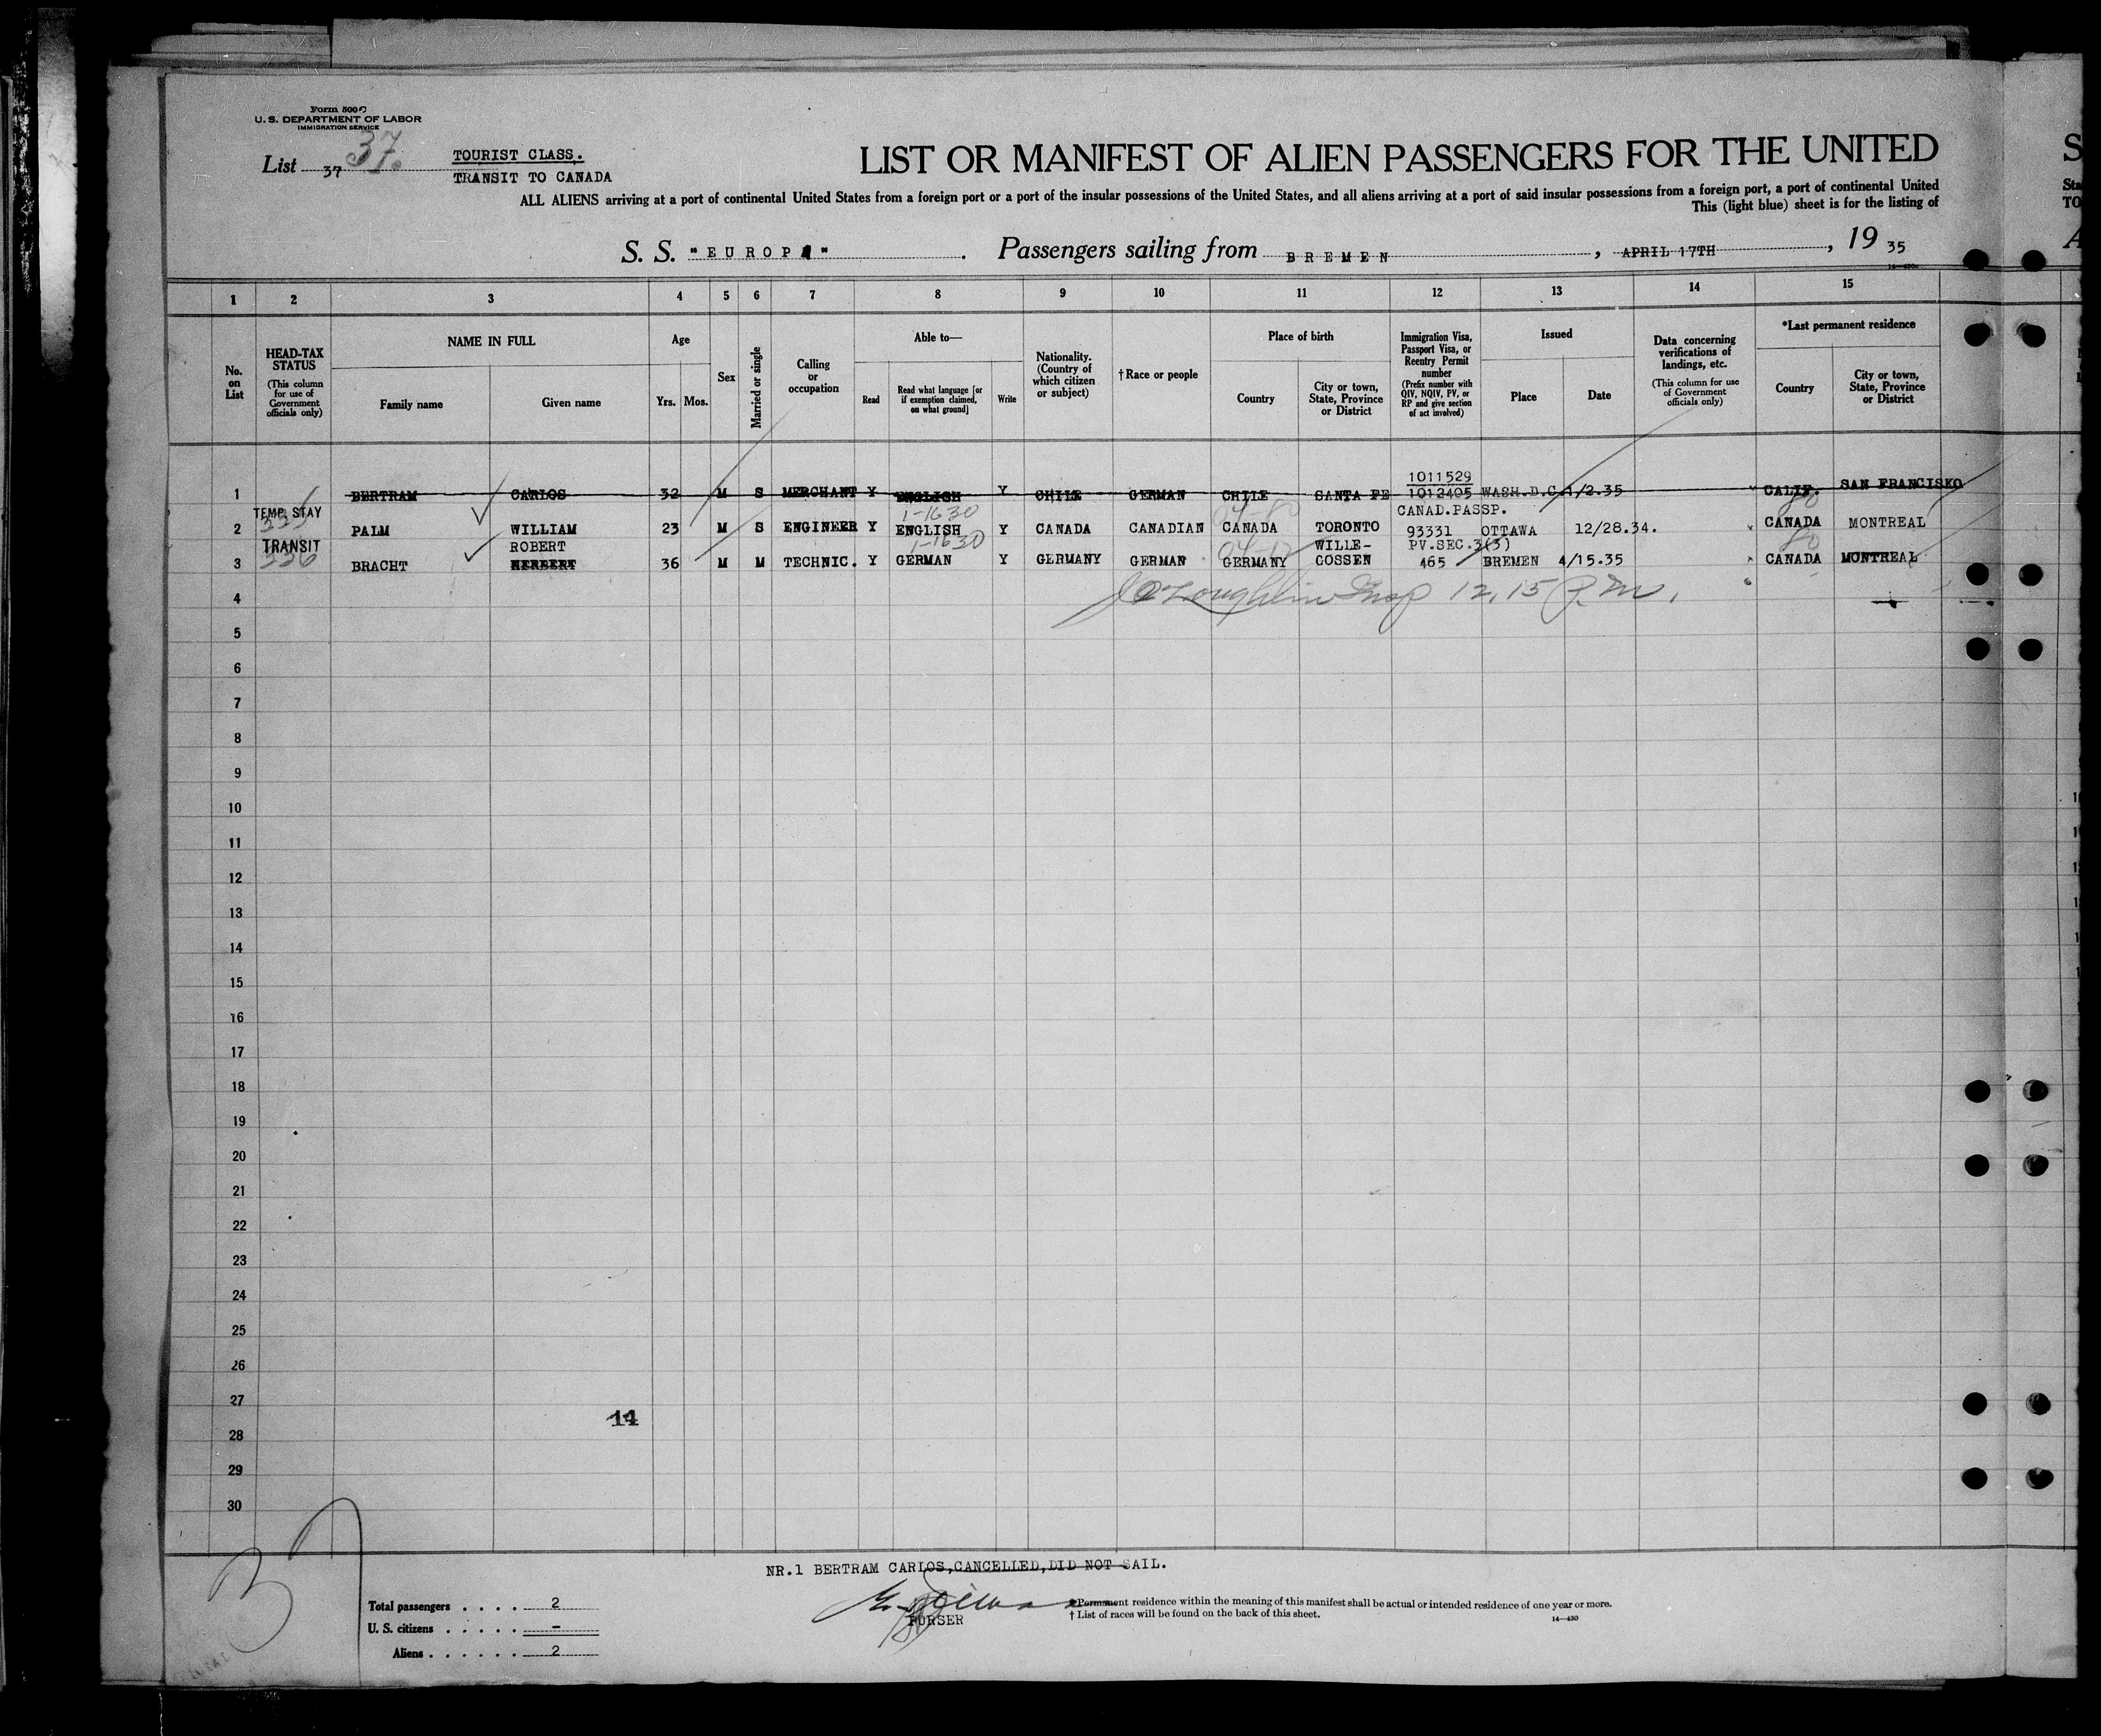 Form 500
U. S. DEPARTMENT OF LABOR
IMMIGRATION SERVICE
List 37 37.
TOURIST CLASS.
TRANSIT TO CANADA
LIST OR MANIFEST OF ALIEN PASSENGERS FOR THE UNITED
ALL ALIENS arriving at a port of continental United States from a foreign port or a port of the insular possessions of the United States, and all aliens arriving at a port of said insular possessions from a foreign port, a port of continental United
This (light blue) sheet is for the listing of
S. S. "EUROPA". Passengers sailing from BREMEN, APRIL 17TH, 19 35
1 2 3 4 5 6 7 8 9 10 11 12 13 14 15
No. on List
HEAD-TAX STATUS
(This column for use of Government officials only)
NAME IN FULL
Family name
Given name
Age
Yrs. Mos.
Sex
Married or single
Calling or occupation
Able to—
Read
Read what language [or if exemption claimed, on what ground]
Write
Nationality. (Country of which citizen or subject)
†Race or people
Place of birth
Country
City or town, State, Province or District
Immigration Visa, Passport Visa, or Reentry Permit number
(Prefix number with QIV, NQIV, PV, or RP and give section of act involved)
Issued
Place
Date
Data concerning verifications of landings, etc.
(This column for use of Government officials only)
*Last permanent residence
Country
City or town, State, Province or District
1011529
1 BERTRAM CARLOS 32 M S MERCHANT Y ENGLISH Y CHILE GERMAN CHILE SANTA FE 1012405 WASH.D.C. 1/2.35 CALIF. SAN FRANCISKO
TEMP. STAY 1-1630 CANAD.PASSP.
2 PALM WILLIAM 23 M S ENGINEER Y ENGLISH Y CANADA CANADIAN CANADA TORONTO 93331 OTTAWA 12/28.34. CANADA MONTREAL
TRANSIT ROBERT 1-1630 WILLE- PV.SEC.3(3)
3 226 BRACHT HERBERT 36 M M TECHNIC. Y GERMAN Y GERMANY GERMAN GERMANY COSSEN 465 BREMEN 4/15.35 CANADA MONTREAL
4 J O'Loughlin Insp 12.15 P.M.
5
6
7
8
9
10
11
12
13
14
15
16
17
18
19
20
21
22
23
24
25
26
27
14
28
29
30
NR.1 BERTRAM CARLOS,CANCELLED,DID NOT SAIL.
Total passengers . . . . 2
U. S. citizens . . . . . –
Aliens . . . . . . 2
PURSER
*Permanent residence within the meaning of this manifest shall be actual or intended residence of one year or more.
† List of races will be found on the back of this sheet.
14—430